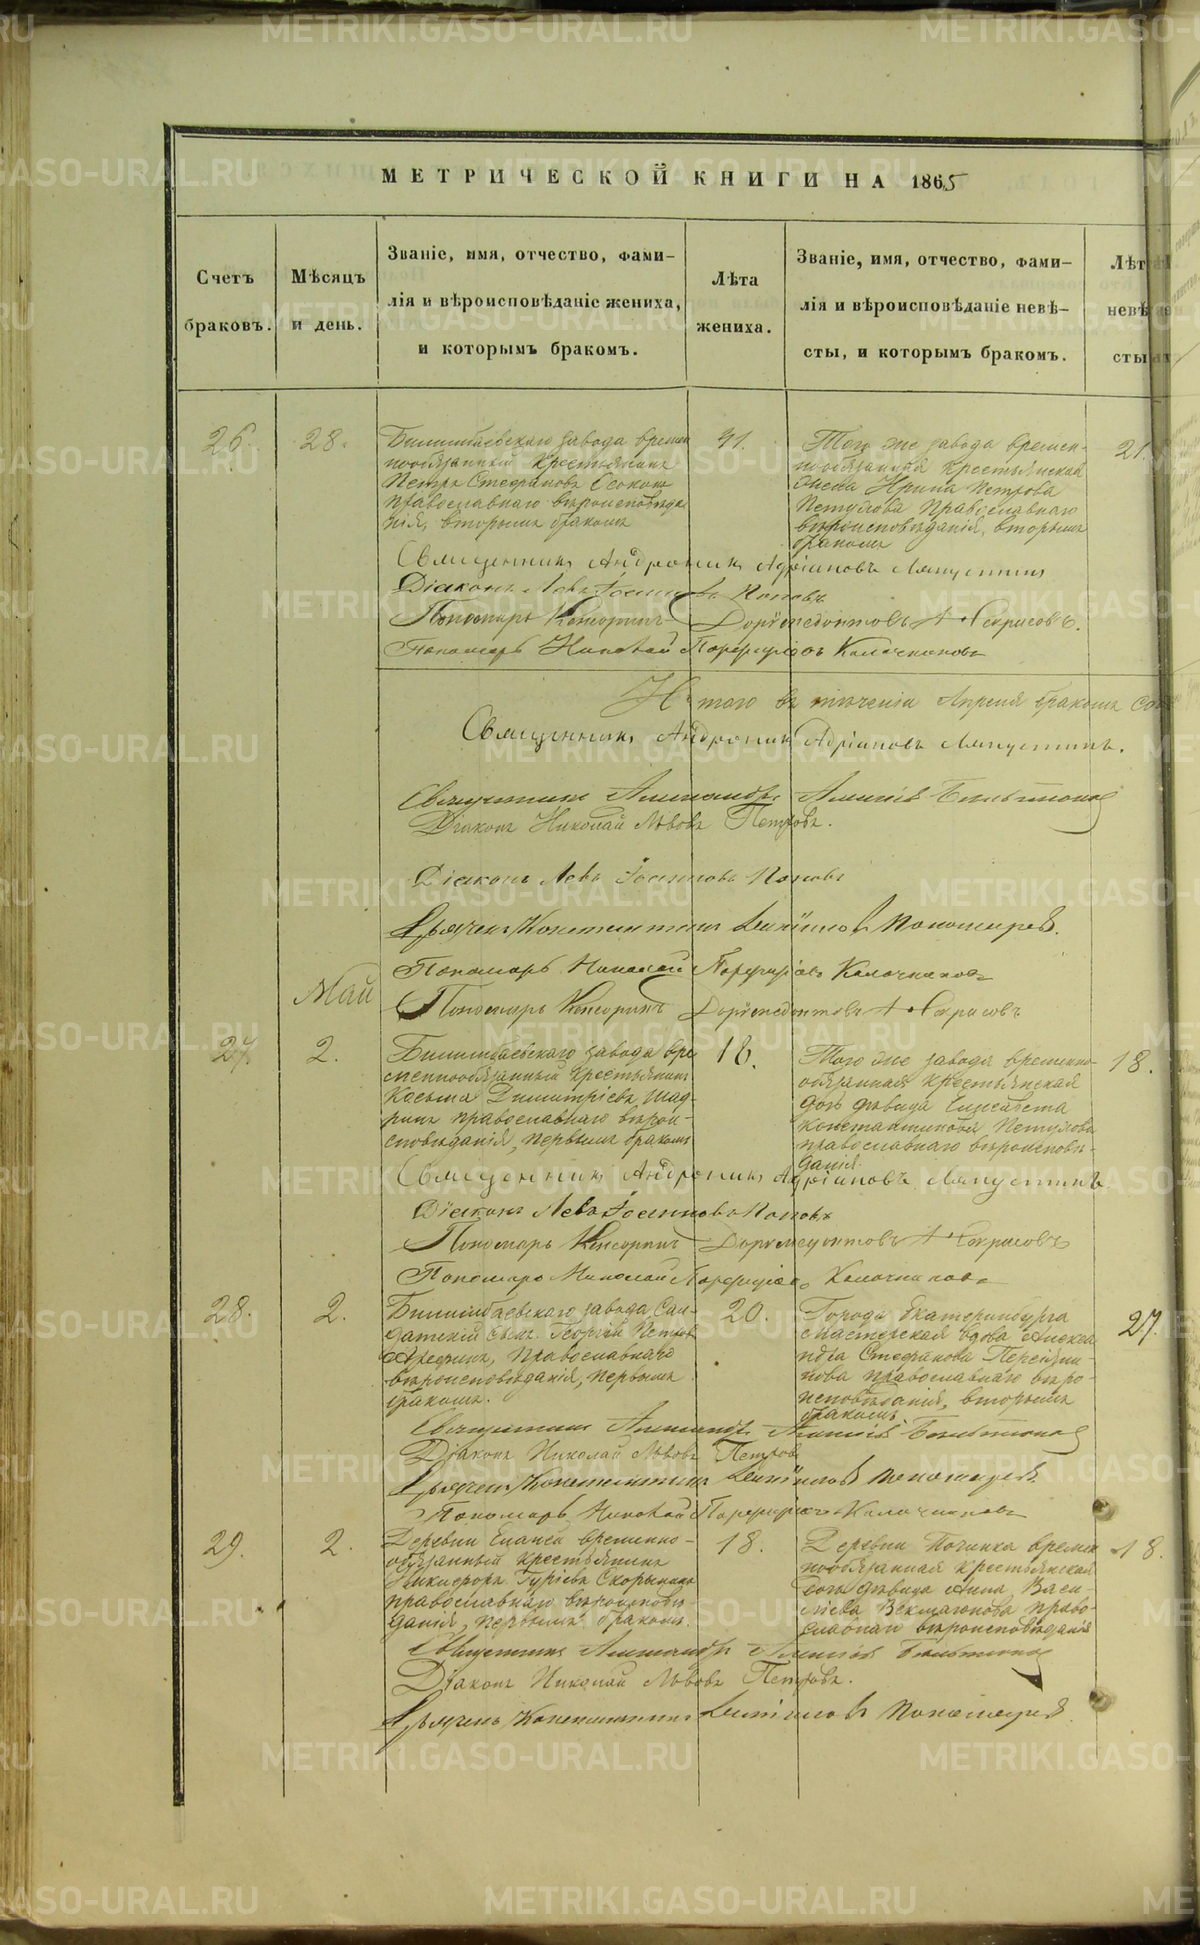 МЕТРИЧЕСКОЙ КНИГИ НА 1865
Счетъ браковъ.
Мѣсяцъ и день.
Званіе, имя, отчество, фами-
лія и вѣроисповѣданіе жениха,
и которымъ бракомъ.
Лѣта жениха.
Званіе, имя, отчество, фами-
лія и вѣроисповѣданіе невѣ-
сты, и которымъ бракомъ.
Лѣт
невѣ
сты
26.
28.
Билимбаевскаго завода времен
нообязанный крестьянинъ
Петръ Стефановъ
православнаго вѣроисповѣда
нія, вторымъ бракомъ
Того же завода времен-
нообязанная крестьянская
жена Ирина Петрова
Петухова Православнаго
вѣроисповѣданія, вторымъ
бракомъ
21.
Священникъ Андроникъ Адріановъ Ляпустинъ
Діаконъ Левъ Іоанновъ Поповъ
Пономарь Кенсоринъ Доримедонтовъ Некрасовъ.
Пономарь Николай Порфиріевъ Калачниковъ
Итого въ теченіи Апреля бракомъ
Священникъ Андроникъ Адріановъ Ляпустинъ.
Священникъ Александръ Алексіевъ
Діаконъ Николай Львовъ Петровъ.
Діаконъ Левъ Іоанновъ Поповъ
Дьячекъ Константинъ Пономаревъ.
Пономарь Николай Порфиріевъ Калачниковъ
Май
Пономарь Кенсоринъ Доримедонтовъ Некрасовъ
27.
2.
Билимбаевскаго завода вре
меннообязанный крестьянинъ
Косьма Димитріевъ Шад-
ринъ православнаго вѣрои-
сповѣданія, первымъ бракомъ
18.
Того же завода временно-
обязанная крестьянская
дочь дѣвица Елисавета
Константинова Петухова
православнаго вѣроисповѣ-
данія.
18.
Священникъ Андроникъ Адріановъ Ляпустинъ
Діаконъ Левъ Іоанновъ Поповъ
Пономарь Кенсоринъ Доримедонтовъ Некрасовъ
Пономарь Николай Порфиріевъ Калачниковъ
28.
2.
Билимбаевскаго завода Сол-
датскій сынъ Георгій Петровъ
Арефинъ, Православнаго
вѣроисповѣданія, первымъ
бракомъ.
20.
Города Екатеринбурга
мастерская вдова Алекса
ндра Стефанова
православнаго вѣро-
исповѣданія, вторымъ
бракомъ.
27.
Священникъ Александръ Алексіевъ
Діаконъ Николай Львовъ Петровъ
Дьячекъ Константинъ Пономаревъ
Пономарь Николай Порфиріевъ Калачниковъ
29.
2.
Деревни временно-
обязанный крестьянинъ
Никифоръ Гуріевъ Скорынинъ
православнаго вѣроисповѣ-
данія, первымъ бракомъ.
18.
Деревни Починка времен
нообязанная крестьянская
дочь дѣвица Анна Васи-
льева право-
славнаго вѣроисповѣданія
18.
Священникъ Александръ Алексіевъ
Діаконъ Николай Львовъ Петровъ.
Дьячекъ Константинъ Пономаревъ